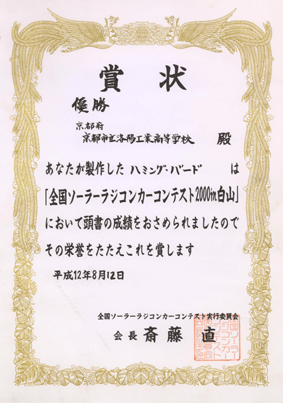 賞状
優勝
京都府
京都市立洛陽工業高等学校 殿
あなたが製作した ハミング・バード は
「全国ソーラーラジコンカーコンテスト2000in白山」
において頭書の成績をおさめられましたので
その栄誉をたたえこれを賞します
平成12年8月12日
全国ソーラーラジコンカーコンテスト実行委員会
会長 斎藤 直